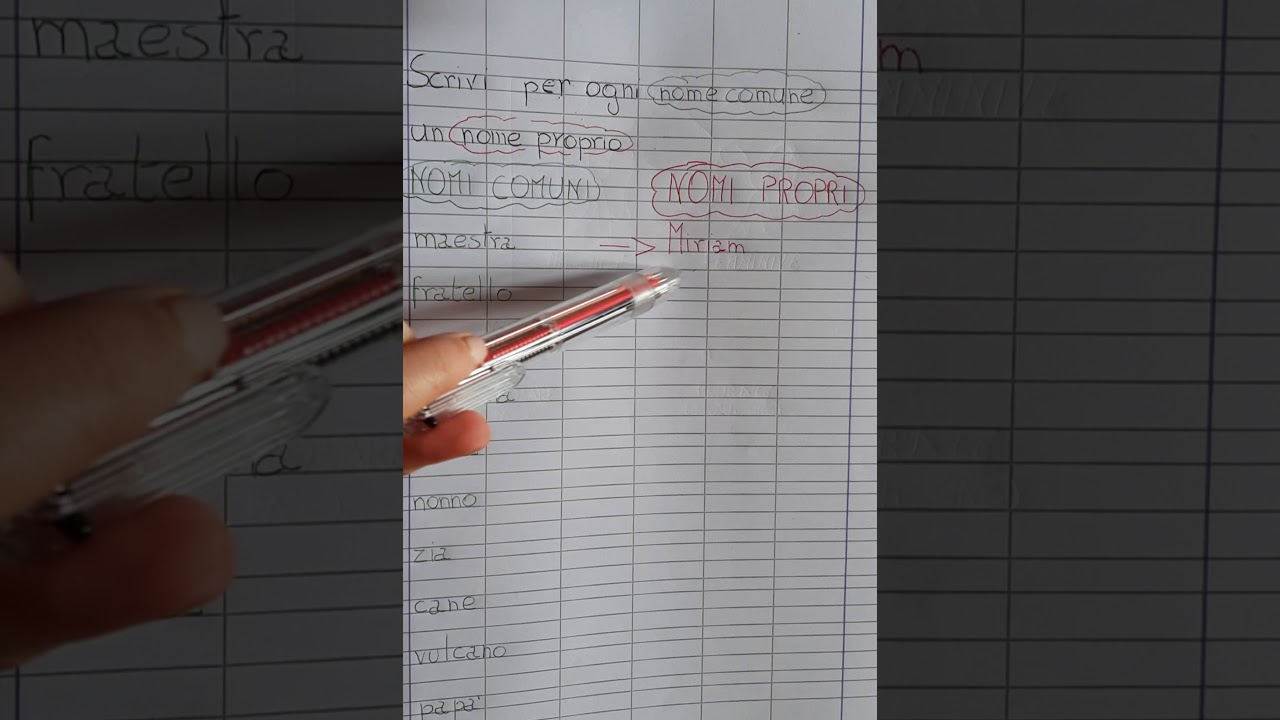 Scrivi per ogni nome comune
un nome proprio
NOMI COMUNI NOMI PROPRI
maestra → Miriam
fratello
nonno
zia
cane
vulcano
papà